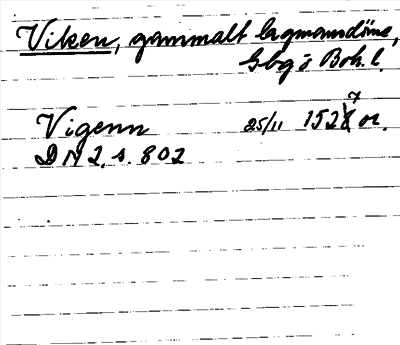 Viken, gammalt lagmansdöme,
Gbg o Boh. l.
Vigenn 25/11 1527 or.
DN 2, s. 802